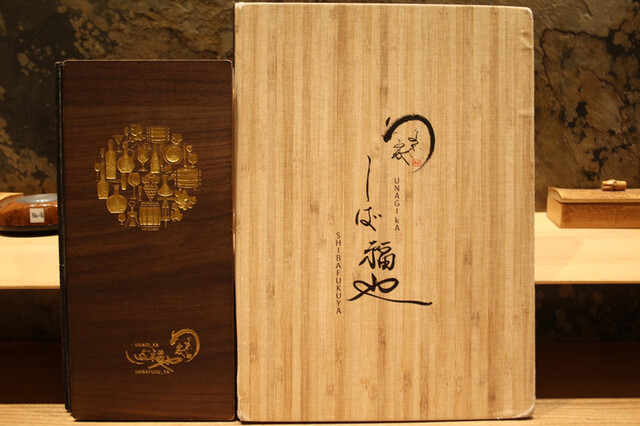 UNAGI_KA
しば福也
SHIBAFUKU_YA
う
なぎ
家
UNAGI kA
しば福也
SHIBAFUKUYA